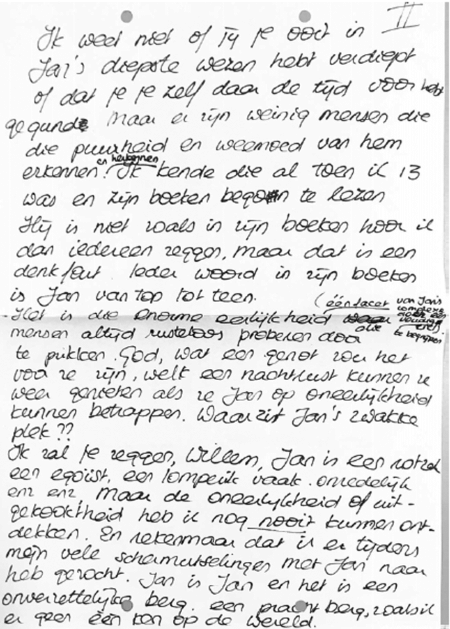 II
Ik weet niet of jij je ooit in
Jan's diepste wezen hebt verdiept
of dat je je zelf daar de tijd voor hebt
gegund maar er zijn weinig mensen die
die puurheid en weemoed van hem
erkennen en herkennen. Ik kende die al toen ik 13
was en zijn boeken begon te lezen
Hij is niet zoals in zijn boeken hoor ik
dan iedereen zeggen, maar dat is een
denkfout Ieder woord in zijn boeken
is Jan van top tot teen.
(één facet van Jan's
Het is die enorme eerlijkheid die
mensen altijd rusteloos proberen door
te prikken. God, wat een genot zou het
voor ze zijn, welk een nachtlust kunnen ze
weer genieten als ze Jan op oneerlijkheid
kunnen betrappen. Waar zit Jan's zwakke
plek??
Ik zal je zeggen, Willem, Jan is een rotzak
een egoïst, een lomperik vaak. onredelijk
enz enz, maar de oneerlijkheid of uit-
gekooktheid heb ik nog nooit kunnen ont-
dekken. En reken maar dat ik er tijdens
mijn vele schermutselingen met Jan naar
heb gezocht. Jan is Jan en het is een
onverzettelijke berg. een prachtberg, zoals ik
er geen één ken op de wereld.